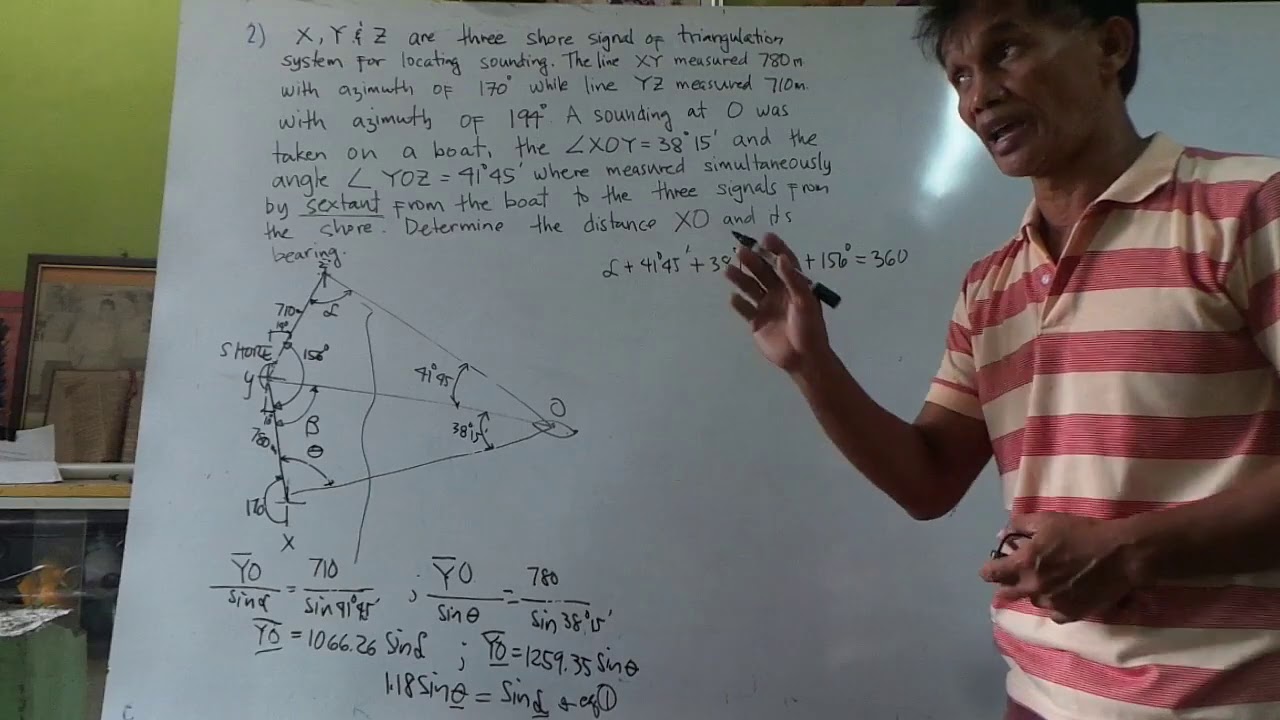 2) X, Y & Z are three shore signal of triangulation
system for locating sounding. The line XY measured 780m
with azimuth of 170° while line YZ measured 710m.
with azimuth of 194°. A sounding at O was
taken on a boat, the ∠XOY = 38°15' and the
angle ∠ YOZ = 41°45' where measured simultaneously
by sextant from the boat to the three signals from
the shore. Determine the distance XO and its
bearing.
α + 41°45' + 38° + 156° = 360
Z
710
α
SHORE
156°
Y
41°45
O
β
38°15
780
θ
170
X
YO/sinα = 710/sin41°45' ; YO/sinθ = 780/sin38°15'
YO = 1066.26 sinα ; YO = 1259.35 sinθ
1.18 sinθ = sinα → eq①